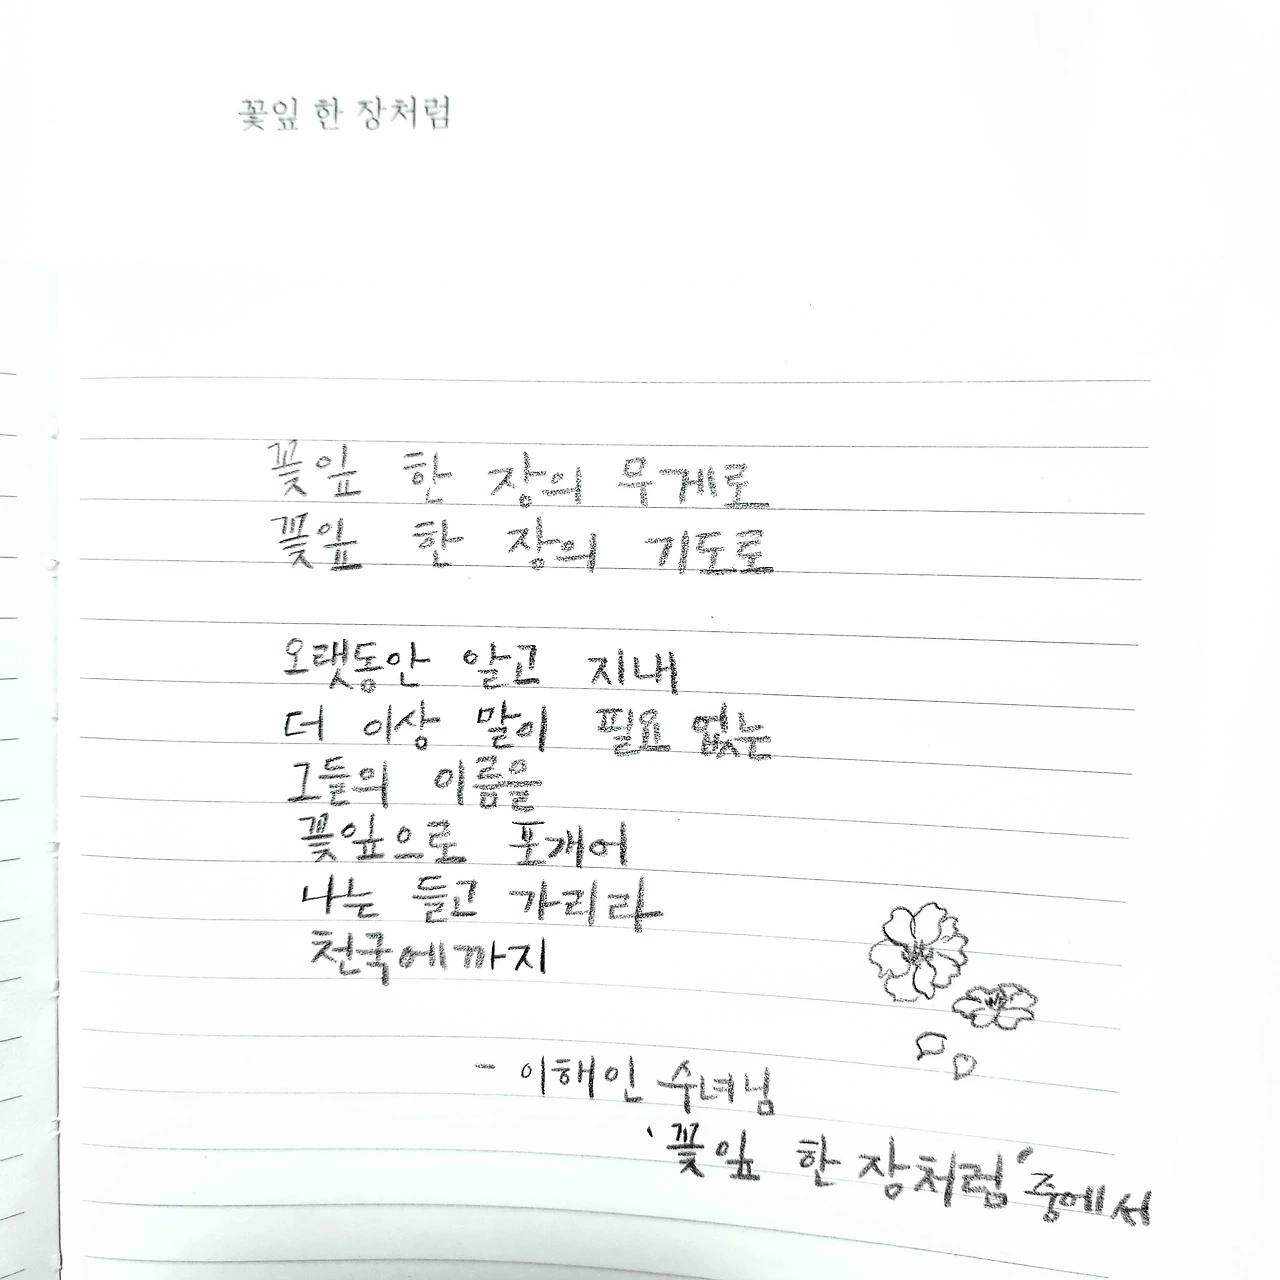 꽃잎 한 장처럼
꽃잎 한 장의 무게로
꽃잎 한 장의 기도로
오랫동안 알고 지내
더 이상 말이 필요 없는
그들의 이름을
꽃잎으로 포개어
나는 들고 가리라
천국에까지
- 이해인 수녀님
'꽃잎 한 장처럼' 중에서